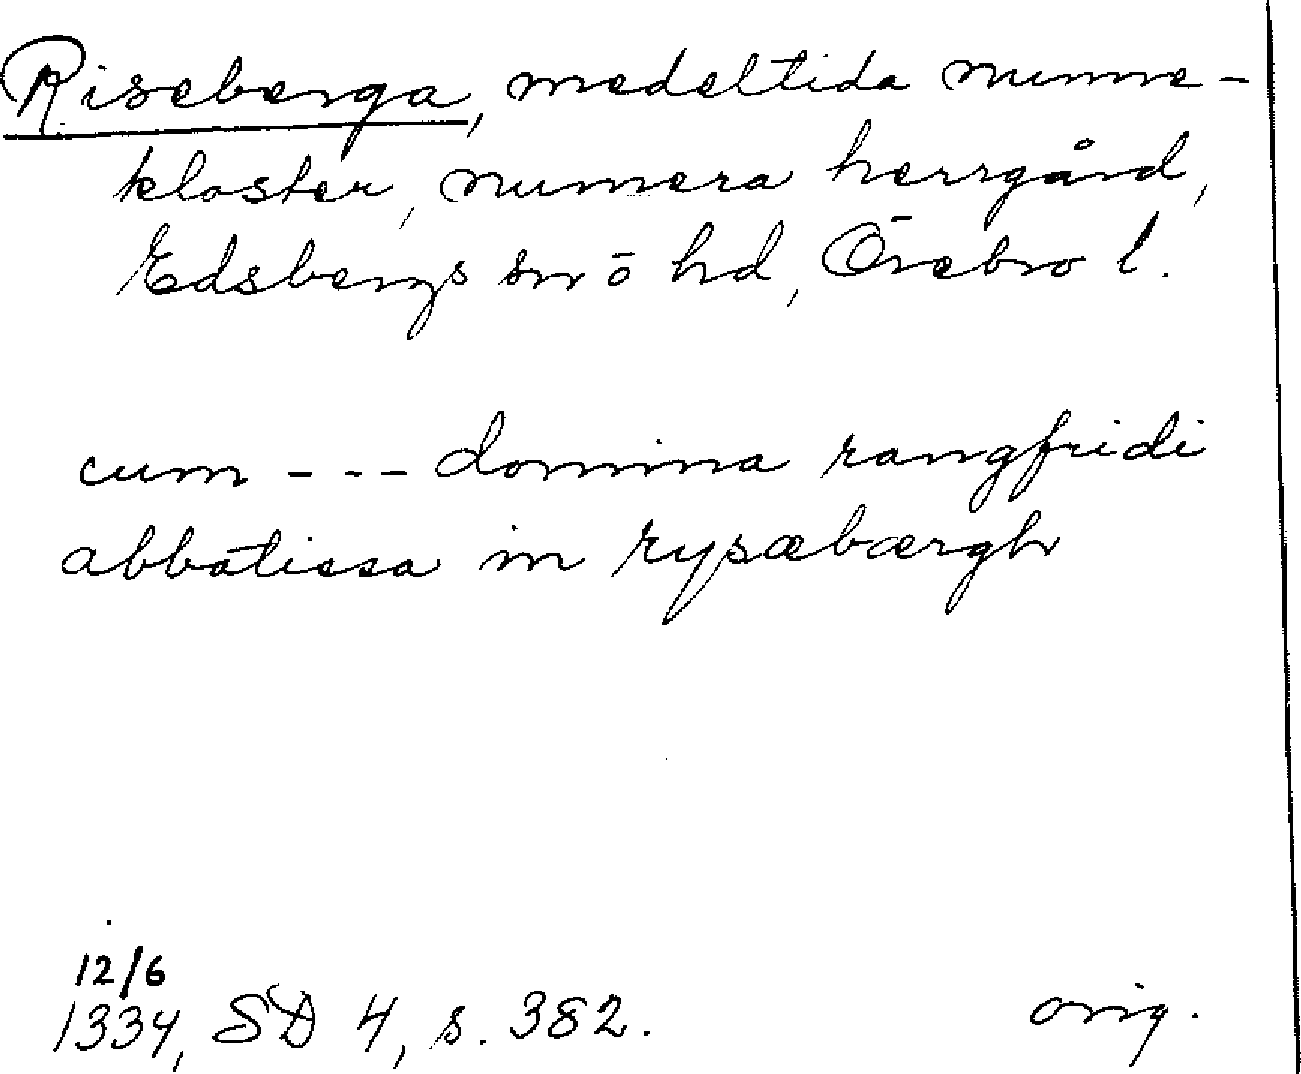 Riseberga, medeltida nunne-
kloster, numera herrgård,
Edsbergs sn o hd, Örebro l.
cum --- domina rangfridi
abbatissa in rysæbærgh
12/6
1334, SD 4, s. 382. orig.